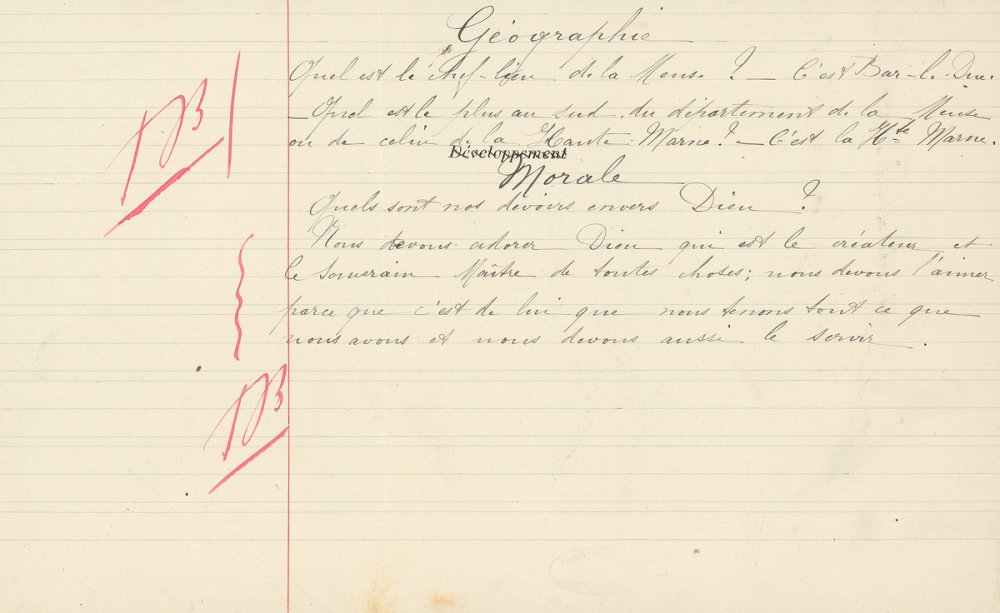 Géographie
Quel est le chef-lieu de la Meuse ? — C'est Bar-le-Duc.
— Quel est le plus au sud du département de la Meuse
ou de celui de la Haute-Marne ? — C'est la Hte Marne.
Développement
Morale
Quels sont nos devoirs envers Dieu ?
Nous devons adorer Dieu qui est le créateur et
le Souverain Maître de toutes choses; nous devons l'aimer
parce que c'est de lui que nous tenons tout ce que
nous avons et nous devons aussi le servir.
TB
TB